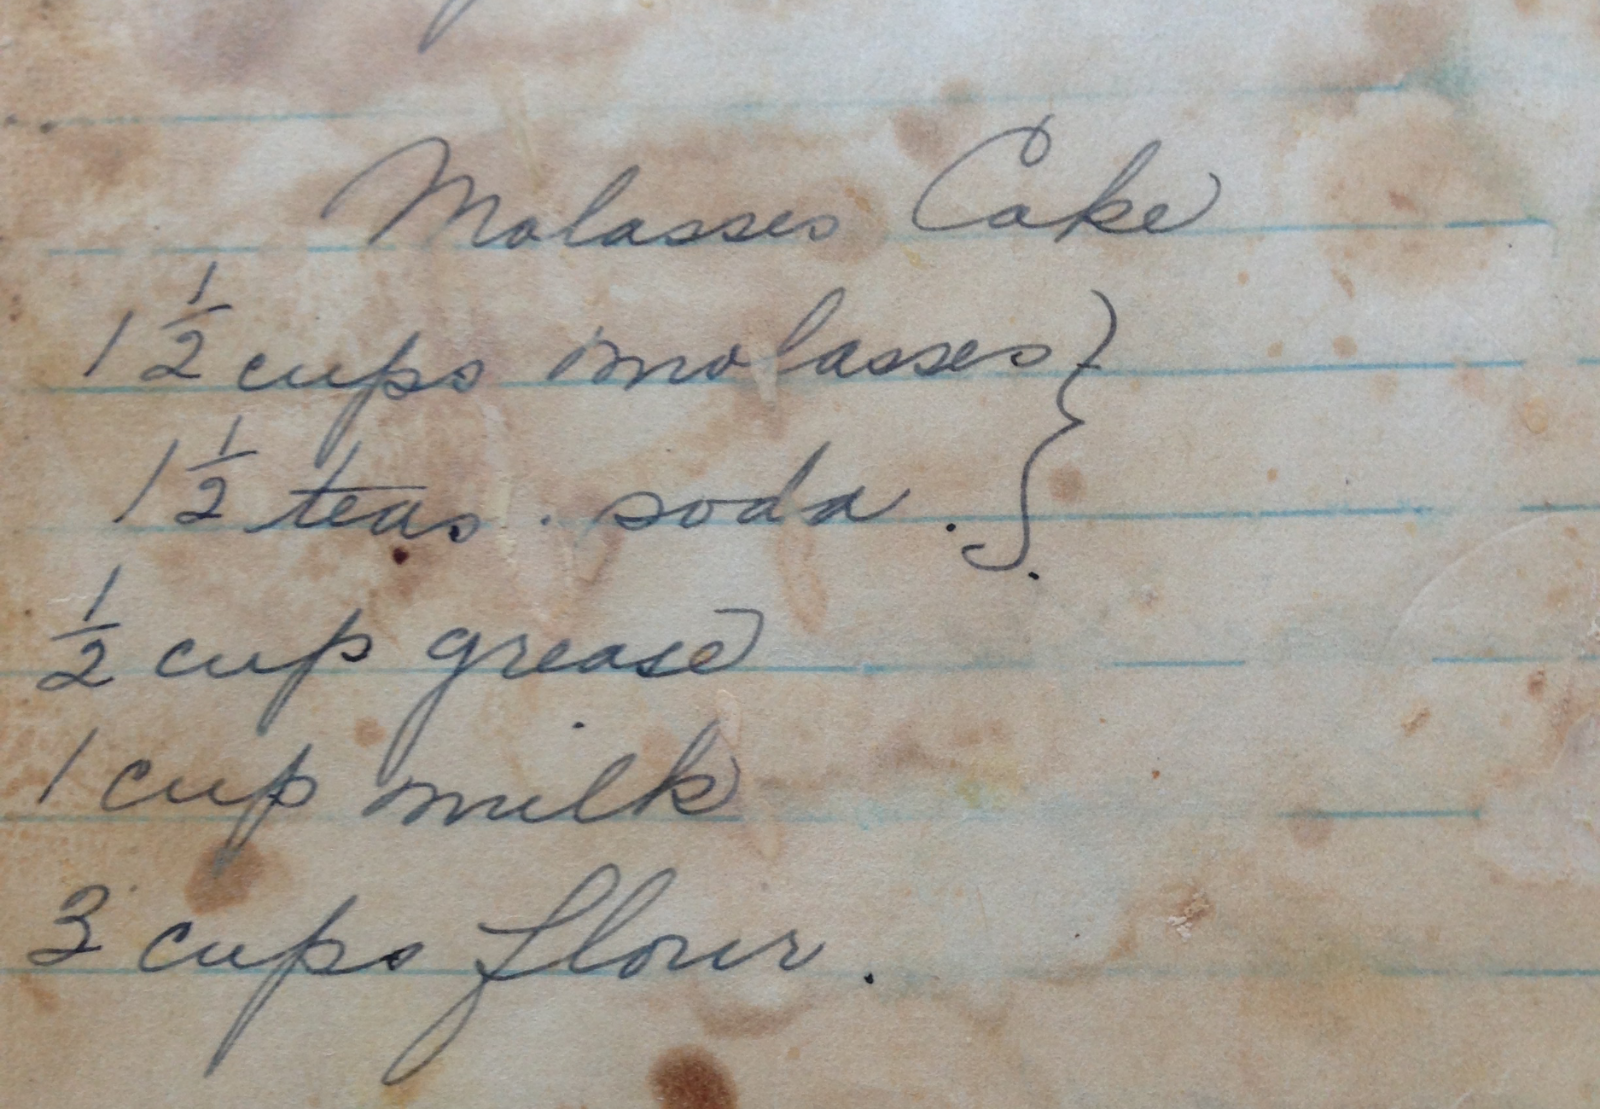 Molasses Cake
1 1/2 cups molasses }
1 1/2 teas. soda. }
1/2 cup grease
1 cup milk
3 cups flour.